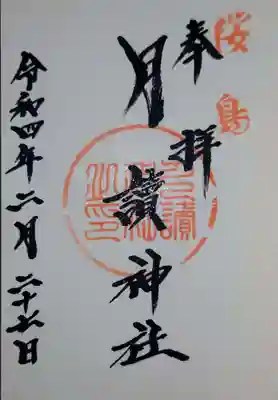 桜島
奉拝
月讀神社
令和四年二月二十六日